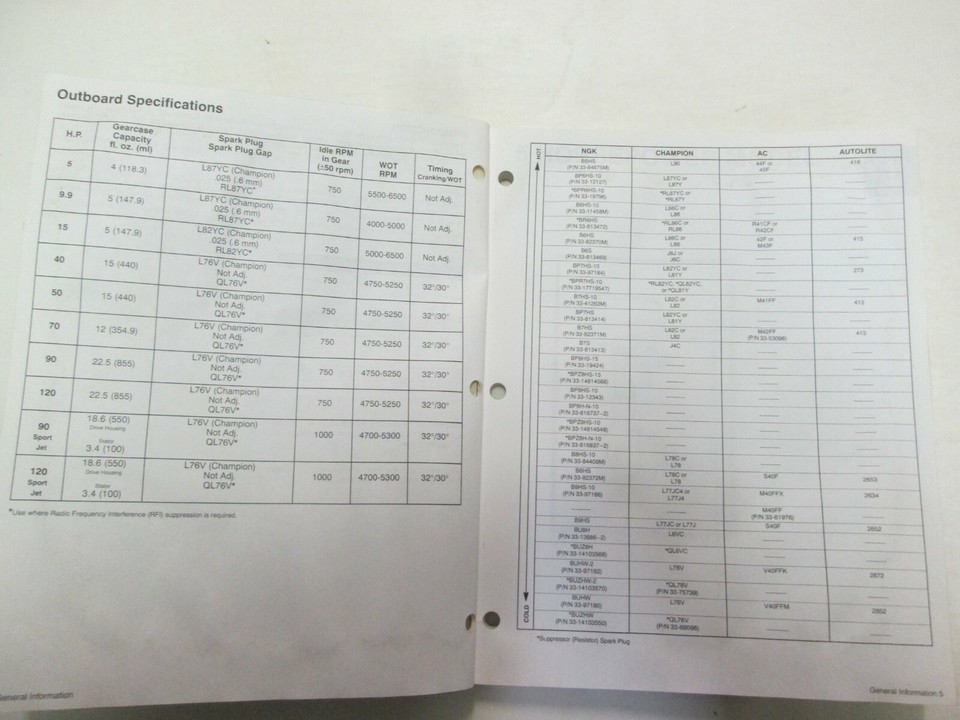 Outboard Specifications
H.P. Gearcase Capacity fl. oz. (ml) Spark Plug Spark Plug Gap Idle RPM in Gear (±50 rpm) WOT RPM Timing Cranking/WOT
5 4 (118.3) L87YC (Champion) .025 (.6 mm) RL87YC* 750 5500-6500 Not Adj.
9.9 5 (147.9) L87YC (Champion) .025 (.6 mm) RL87YC* 750 4000-5000 Not Adj.
15 5 (147.9) L82YC (Champion) .025 (.6 mm) RL82YC* 750 5000-6000 Not Adj.
40 15 (440) L76V (Champion) Not Adj. QL76V* 750 4750-5250 32°/30°
50 15 (440) L76V (Champion) Not Adj. QL76V* 750 4750-5250 32°/30°
70 12 (354.9) L76V (Champion) Not Adj. QL76V* 750 4750-5250 32°/30°
90 22.5 (855) L76V (Champion) Not Adj. QL76V* 750 4750-5250 32°/30°
120 22.5 (855) L76V (Champion) Not Adj. QL76V* 750 4750-5250 32°/30°
90 Sport Jet 18.6 (550) Drive Housing Stator 3.4 (100) L76V (Champion) Not Adj. QL76V* 1000 4700-5300 32°/30°
120 Sport Jet 18.6 (550) Drive Housing Stator 3.4 (100) L76V (Champion) Not Adj. QL76V* 1000 4700-5300 32°/30°
*Use where Radio Frequency Interference (RFI) suppression is required.
General Information
HOT
NGK CHAMPION AC AUTOLITE
B6HS L90 44F or 45F 416
BP6HS-10 L87YC or L87Y
*BPR6HS-10 *RL87YC or *RL87Y
B6HS-10 L86C or L86
*BR6HS *RL86C or RL86 R41CF or R42CF
B6HS L86C or L86 42F or M43F 415
B6S J8J or J6C
BP7HS-10 L82YC or L81Y 273
*BPR7HS-10 *RL82YC, *QL82YC, or *QL81Y
B7HS-10 L82C or L82 M41FF 413
BP7HS L82YC or L81Y
B7HS L82C or L82 M42FF 413
B7S J4C
BP8HS-15
*BPZ8HS-15
BP8HS-10
BP8H-N-10
*BPZ8HS-10
*BPZ8H-N-10
B8HS-10 L78C or L78
B8HS L78C or L78 S40F 2653
B9HS-10 L77JC4 or L77J4 M40FFX 2634
M40FF
B9HS L77JC or L77J S40F 2652
BU8H L6VC
*BUZ8H *QL6VC
BUHW-2 L76V V40FFK 2872
*BUZHW-2 *QL76V
BUHW L76V V40FFM 2852
*BUZHW *QL76V
COLD
*Suppressor (Resistor) Spark Plug
General Information 5